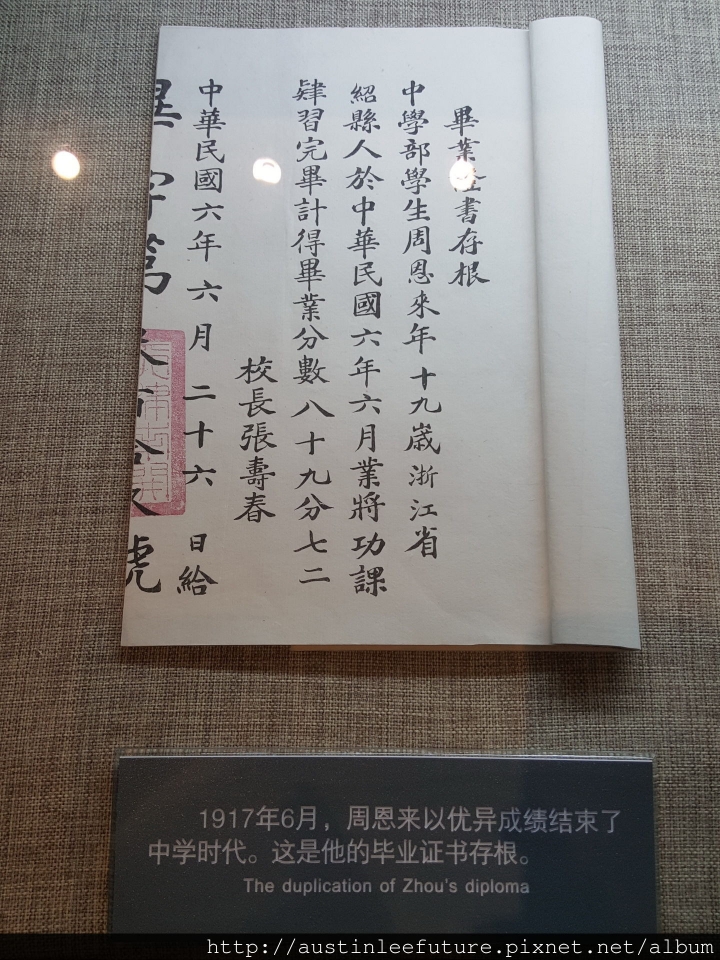 畢業證書存根
中學部學生周恩來年十九歲浙江省
紹縣人於中華民國六年六月業將功課
肄習完畢計得畢業分數八十九分七二
校長張壽春
中華民國六年六月二十六日給
畢字第 號
1917年6月，周恩来以优异成绩结束了
中学时代。这是他的毕业证书存根。
The duplication of Zhou's diploma
http://austinleefuture.pixnet.net/album